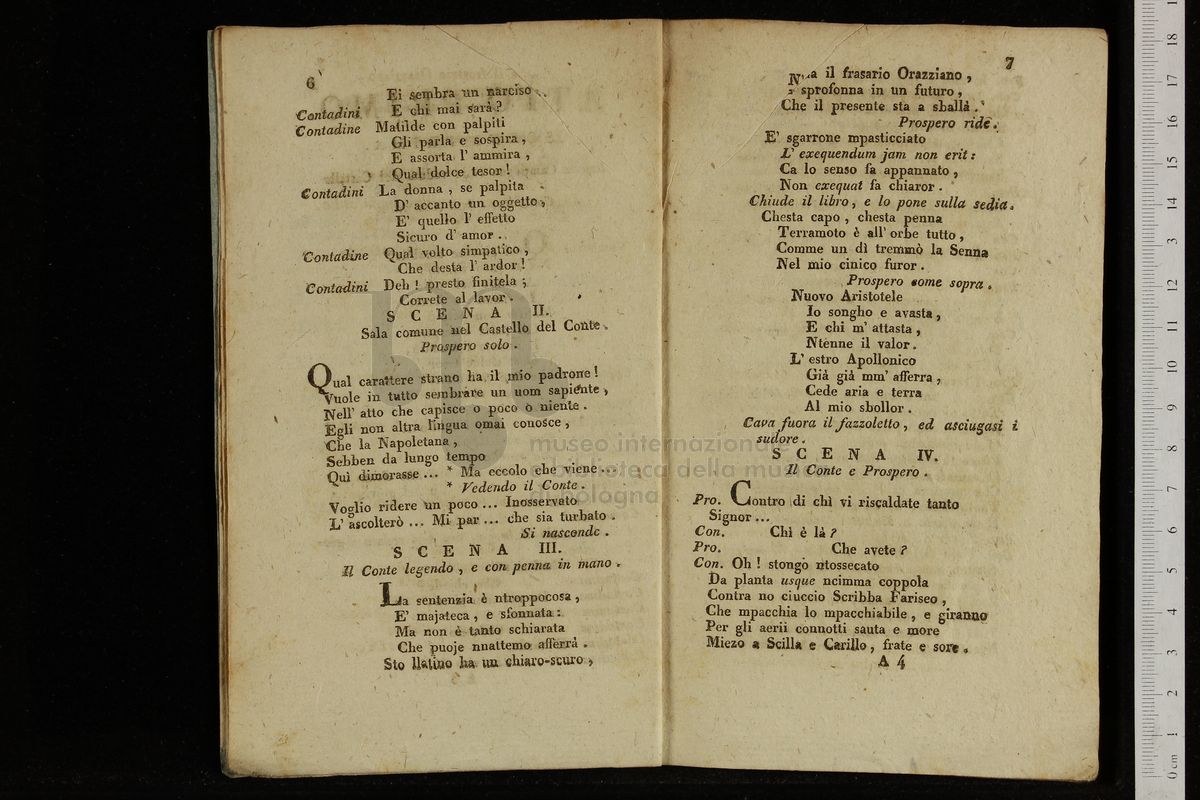 6
Ei sembra un narciso..
Contadini E chi mai sarà?
Contadine Matilde con palpiti
Gli parla e sospira,
E assorta l' ammira,
Qual dolce tesor!
Contadini La donna, se palpita
D' accanto un oggetto,
E' quello l' effetto
Sicuro d' amor..
Contadine Qual volto simpatico,
Che desta l' ardor!
Contadini Deh! presto finitela;
Correte al lavor.
SCENA II.
Sala comune nel Castello del Conte.
Prospero solo.
Qual carattere strano ha il mio padrone!
Vuole in tutto sembrare un uom sapiente,
Nell' atto che capisce o poco o niente.
Egli non altra lingua omai conosce,
Che la Napoletana,
Sebben da lungo tempo
Quì dimorasse... * Ma eccolo che viene...
* Vedendo il Conte.
Voglio ridere un poco... Inosservato
L' ascolterò... Mi par... che sia turbato.
Si nasconde.
SCENA III.
Il Conte legendo, e con penna in mano.
La sentenzia è ntroppocosa,
E' majateca, e sfonnata:
Ma non è tanto schiarata
Che puoje nnattemo afferrà.
Sto llatino ha un chiaro-scuro,
7
il frasario Orazziano,
sprofonna in un futuro,
Che il presente sta a sballà.
Prospero ride.
E' sgarrone mpasticciato
L' exequendum jam non erit:
Ca lo senso fa appannato,
Non exequat fa chiaror.
Chiude il libro, e lo pone sulla sedia.
Chesta capo, chesta penna
Terramoto è all' orbe tutto,
Comme un dì tremmò la Senna
Nel mio cinico furor.
Prospero come sopra.
Nuovo Aristotele
Io songho e avasta,
E chi m' attasta,
Ntenne il valor.
L' estro Apollonico
Già già mm' afferra,
Cede aria e terra
Al mio sbollor.
Cava fuora il fazzoletto, ed asciugasi i
sudore.
SCENA IV.
Il Conte e Prospero.
Pro. Contro di chì vi riscaldate tanto
Signor...
Con. Chì è là?
Pro. Che avete?
Con. Oh! stongo ntossecato
Da planta usque ncimma coppola
Contra no ciuccio Scribba Fariseo,
Che mpacchia lo mpacchiabile, e giranno
Per gli aerii connotti sauta e more
Miezo a Scilla e Carillo, frate e sore.
A 4
museo internazionale
biblioteca della musica
di bologna